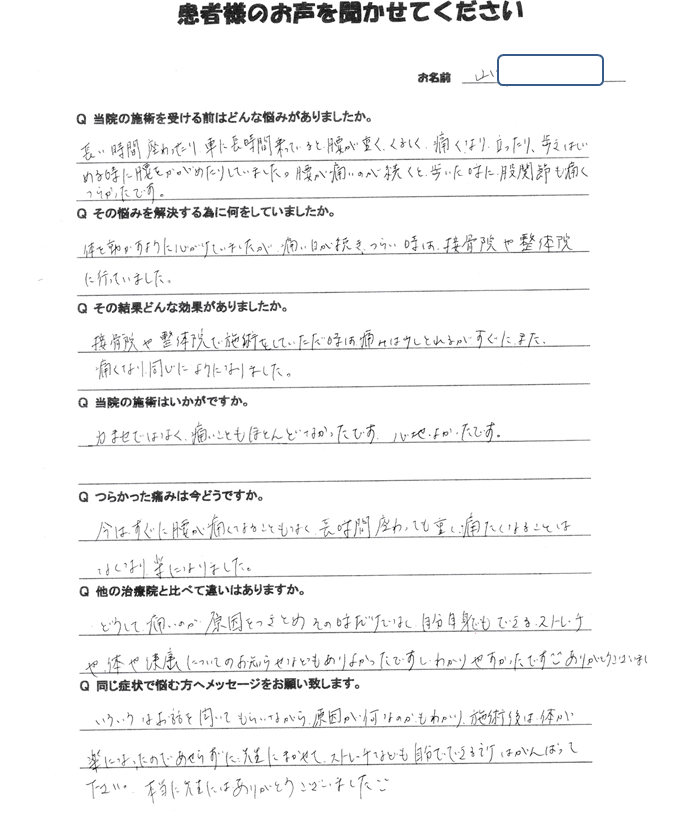 患者様のお声を聞かせてください
お名前 山
Q 当院の施術を受ける前はどんな悩みがありましたか。
長い時間座わったり、車に長時間乗っていると腰が重く、くるしく、痛くなり、立ったり、歩えはじ
める時に腰をかがめたりしていました。腰が痛いのが続くと、歩いた時に、股関節も痛く
つらかったです。
Q その悩みを解決する為に何をしていましたか。
体を動かすように心がけていましたが、痛い日が続き、つらい時は、接骨院や整体院
に行っていました。
Q その結果どんな効果がありましたか。
接骨院や整体院で施術をしていただ時は痛みは少しとれるがすぐに、また、
痛くなり、同じにようになりました。
Q 当院の施術はいかがですか。
力ませではなく、痛いこともほとんどなかったです。心地よかったです。
Q つらかった痛みは今どうですか。
今は、すぐに腰が痛くなることもなく、長時間座わっても重く、痛たくなることは
なくなり、楽になりました。
Q 他の治療院と比べて違いはありますか。
どうして痛いのか原因をつきとめその時だけではなし、自分自身でもできる、ストレッチ
や体や健康についてのお知らせなどもありよかったですし、わかりやすかったですございありがとうございまし
Q 同じ症状で悩む方へメッセージをお願い致します。
いろいろなお話を聞いてもらいながら、原因が何なのかもわかり、施術後は、体が
楽になったのであせらずに、先生にまかせて、ストレッチなども自分でできるだけはがんばって
下さい。本当に先生にはありがとうございました